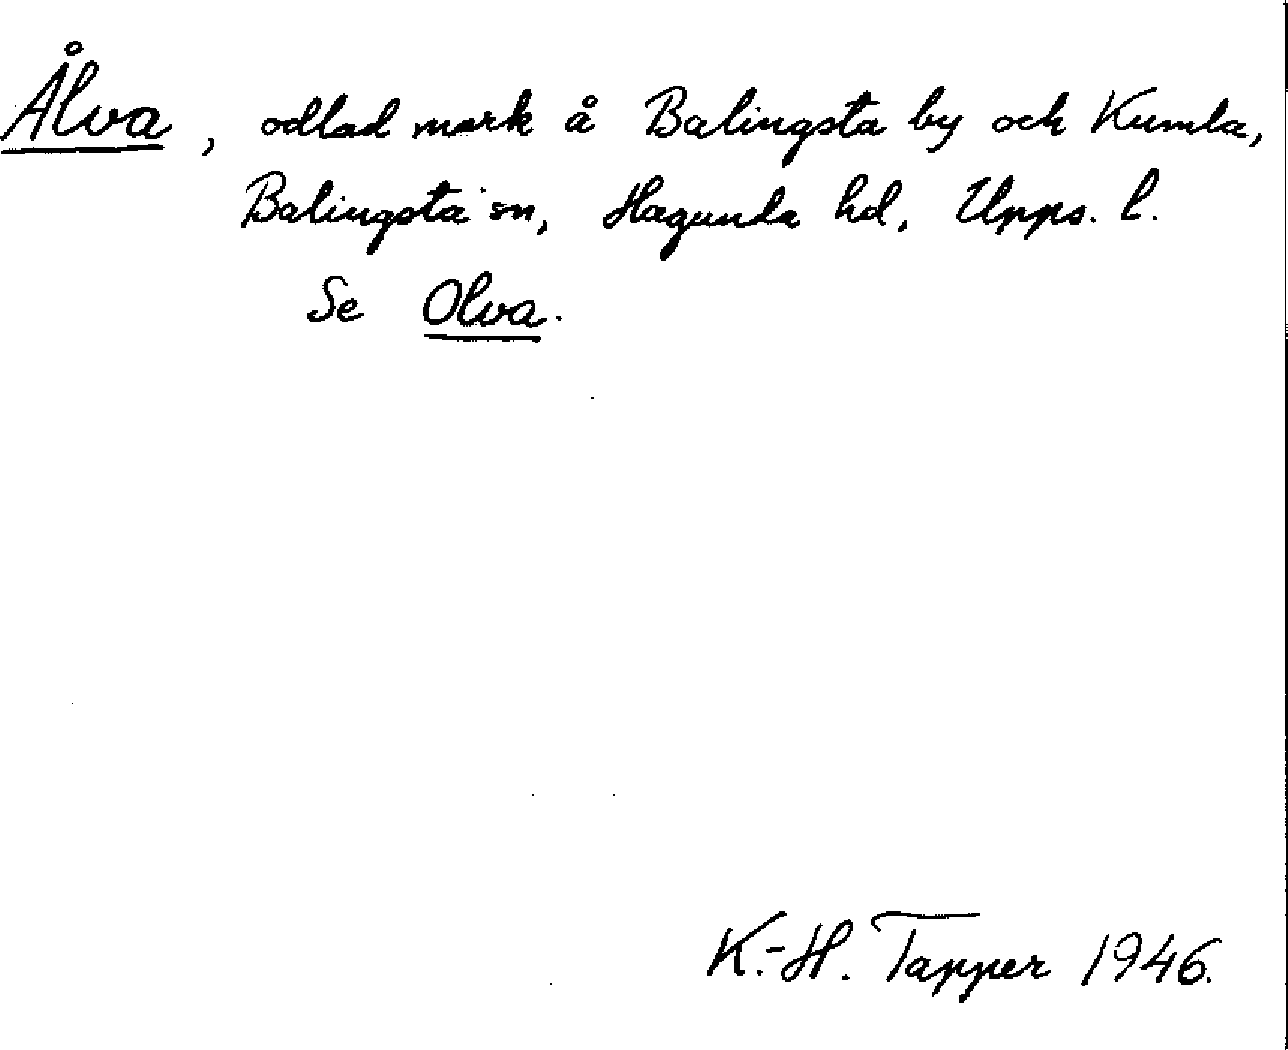 Ålva, odlad mark å Balingsta by och Kumla,
Balingsta sn, Hagunda hd, Upps. l.
Se Olva.
K.-H. Tapper 1946.